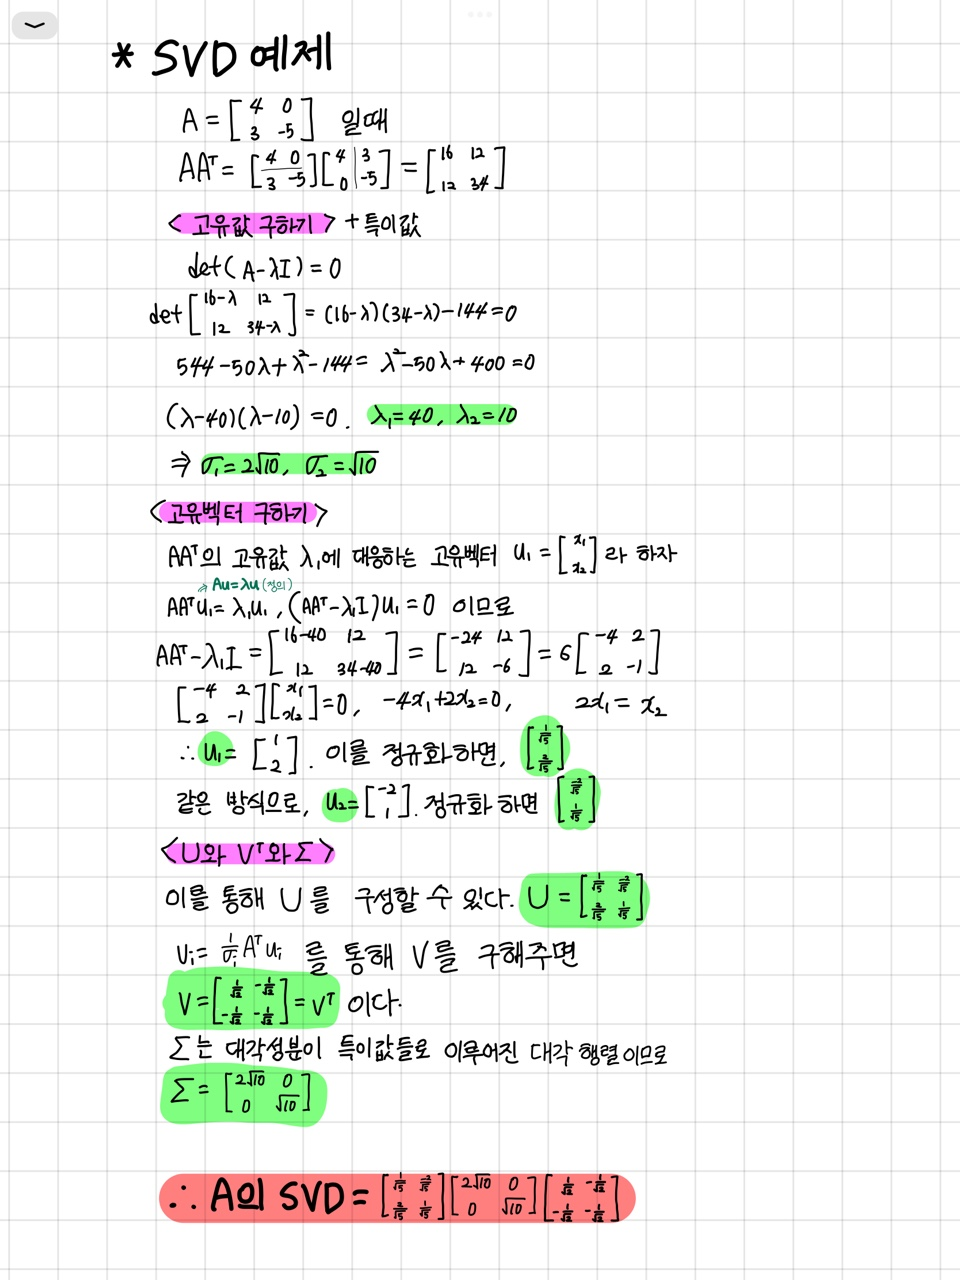 * SVD 예제
A = [4 0; 3 -5] 일때
AAᵀ = [4 0; 3 -5][4 3; 0 -5] = [16 12; 12 34]
<고유값 구하기> + 특이값
det(A-λI) = 0
det[16-λ 12; 12 34-λ] = (16-λ)(34-λ)-144=0
544-50λ+λ²-144= λ²-50λ+400=0
(λ-40)(λ-10)=0. λ₁=40, λ₂=10
⇒ σ₁=2√10, σ₂=√10
<고유벡터 구하기>
AAᵀ의 고유값 λ₁에 대응하는 고유벡터 u₁ = [x₁; x₂] 라 하자
⇒ Au=λu (정의)
AAᵀu₁= λ₁u₁, (AAᵀ-λ₁I)u₁=0 이므로
AAᵀ-λ₁I = [16-40 12; 12 34-40] = [-24 12; 12 -6] = 6[-4 2; 2 -1]
[-4 2; 2 -1][x₁; x₂]=0, -4x₁+2x₂=0, 2x₁= x₂
∴ u₁= [1; 2]. 이를 정규화하면, [1/√5; 2/√5]
같은 방식으로, u₂=[-2; 1]. 정규화 하면 [-2/√5; 1/√5]
<U와 Vᵀ와 Σ>
이를 통해 U를 구성할 수 있다. U = [1/√5 -2/√5; 2/√5 1/√5]
vᵢ= 1/σᵢ Aᵀuᵢ 를 통해 V를 구해주면
V=[1/√2 -1/√2; -1/√2 -1/√2]=Vᵀ 이다.
Σ는 대각성분이 특이값들로 이루어진 대각 행렬이므로
Σ = [2√10 0; 0 √10]
∴ A의 SVD = [1/√5 -2/√5; 2/√5 1/√5][2√10 0; 0 √10][1/√2 -1/√2; -1/√2 -1/√2]